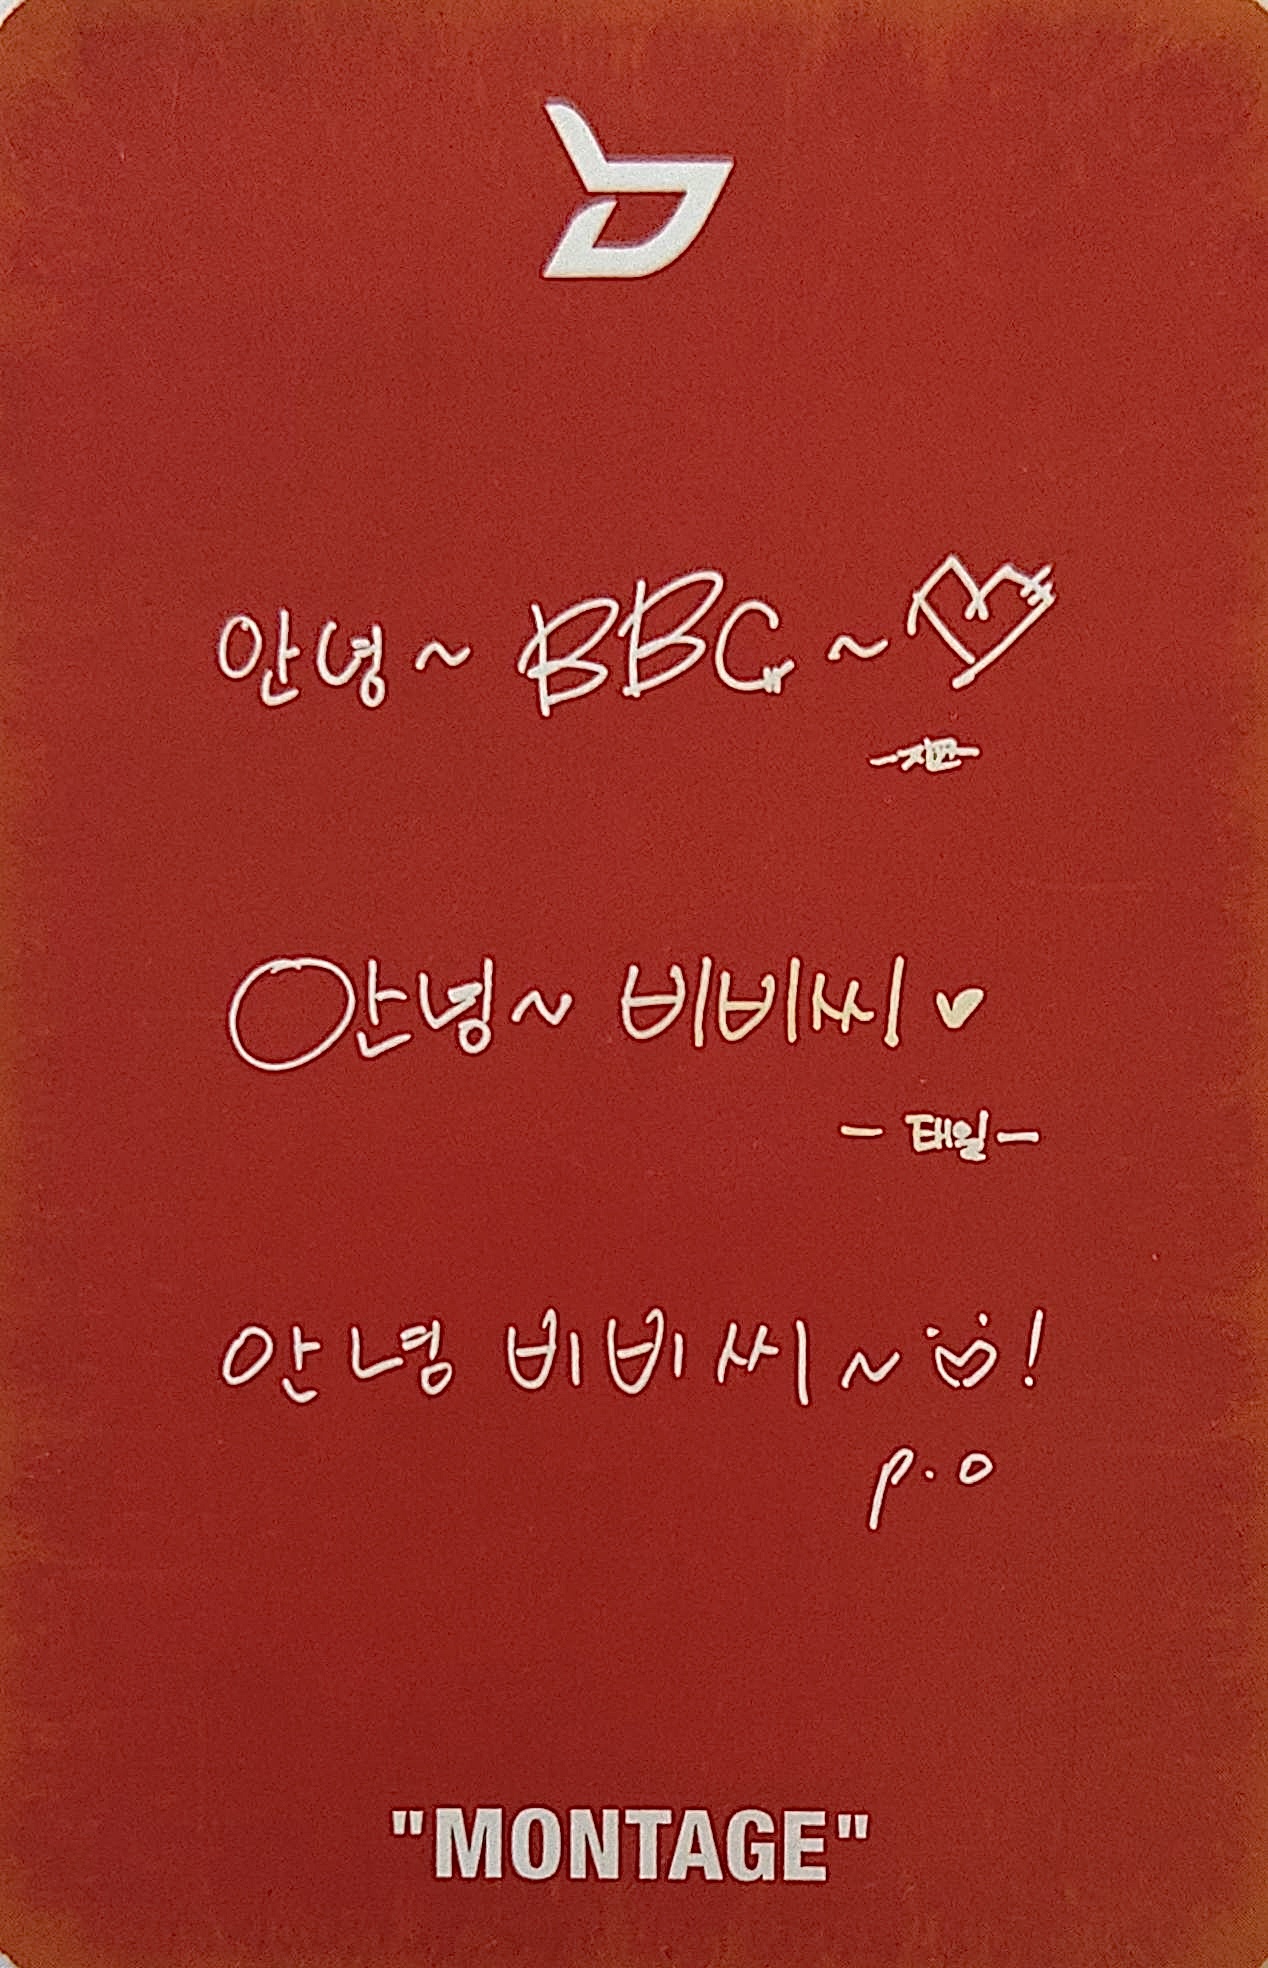 안녕~ BBC~♡
-지코-
안녕~ 비비씨♥
- 태일 -
안녕 비비씨~!
P.O
"MONTAGE"